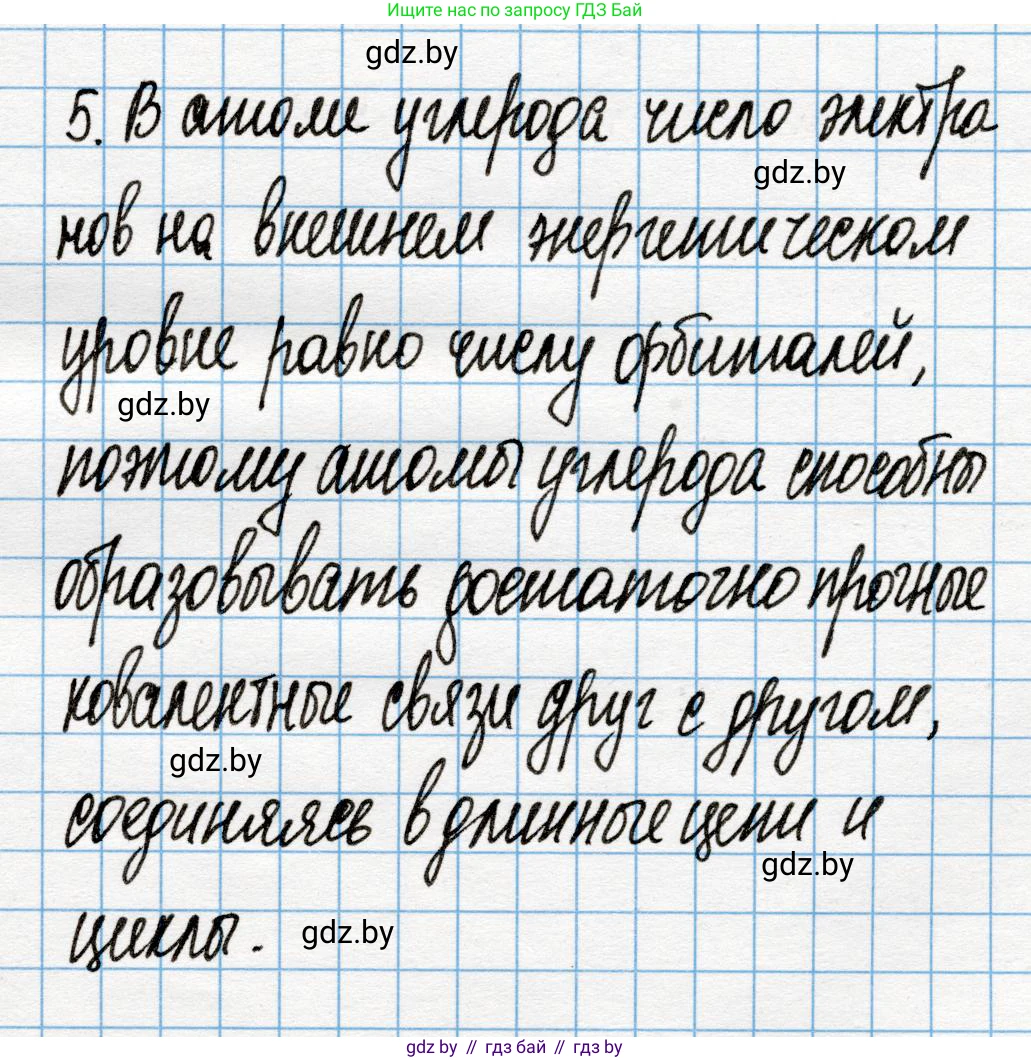 Ищите нас по запросу ГДЗ Бай
gdz.by
5. В атоме углерода число электра
gdz.by
нов на внешнем энергетическом
уровне равно числу орбиталей,
gdz.by
поэтому атомы углерода способны
образовывать достаточно прочные
ковалентные связи друг с другом,
gdz.by
соединяясь в длинные цепи и
gdz.by
циклы.
gdz.by
gdz.by // гдз бай // гдз by